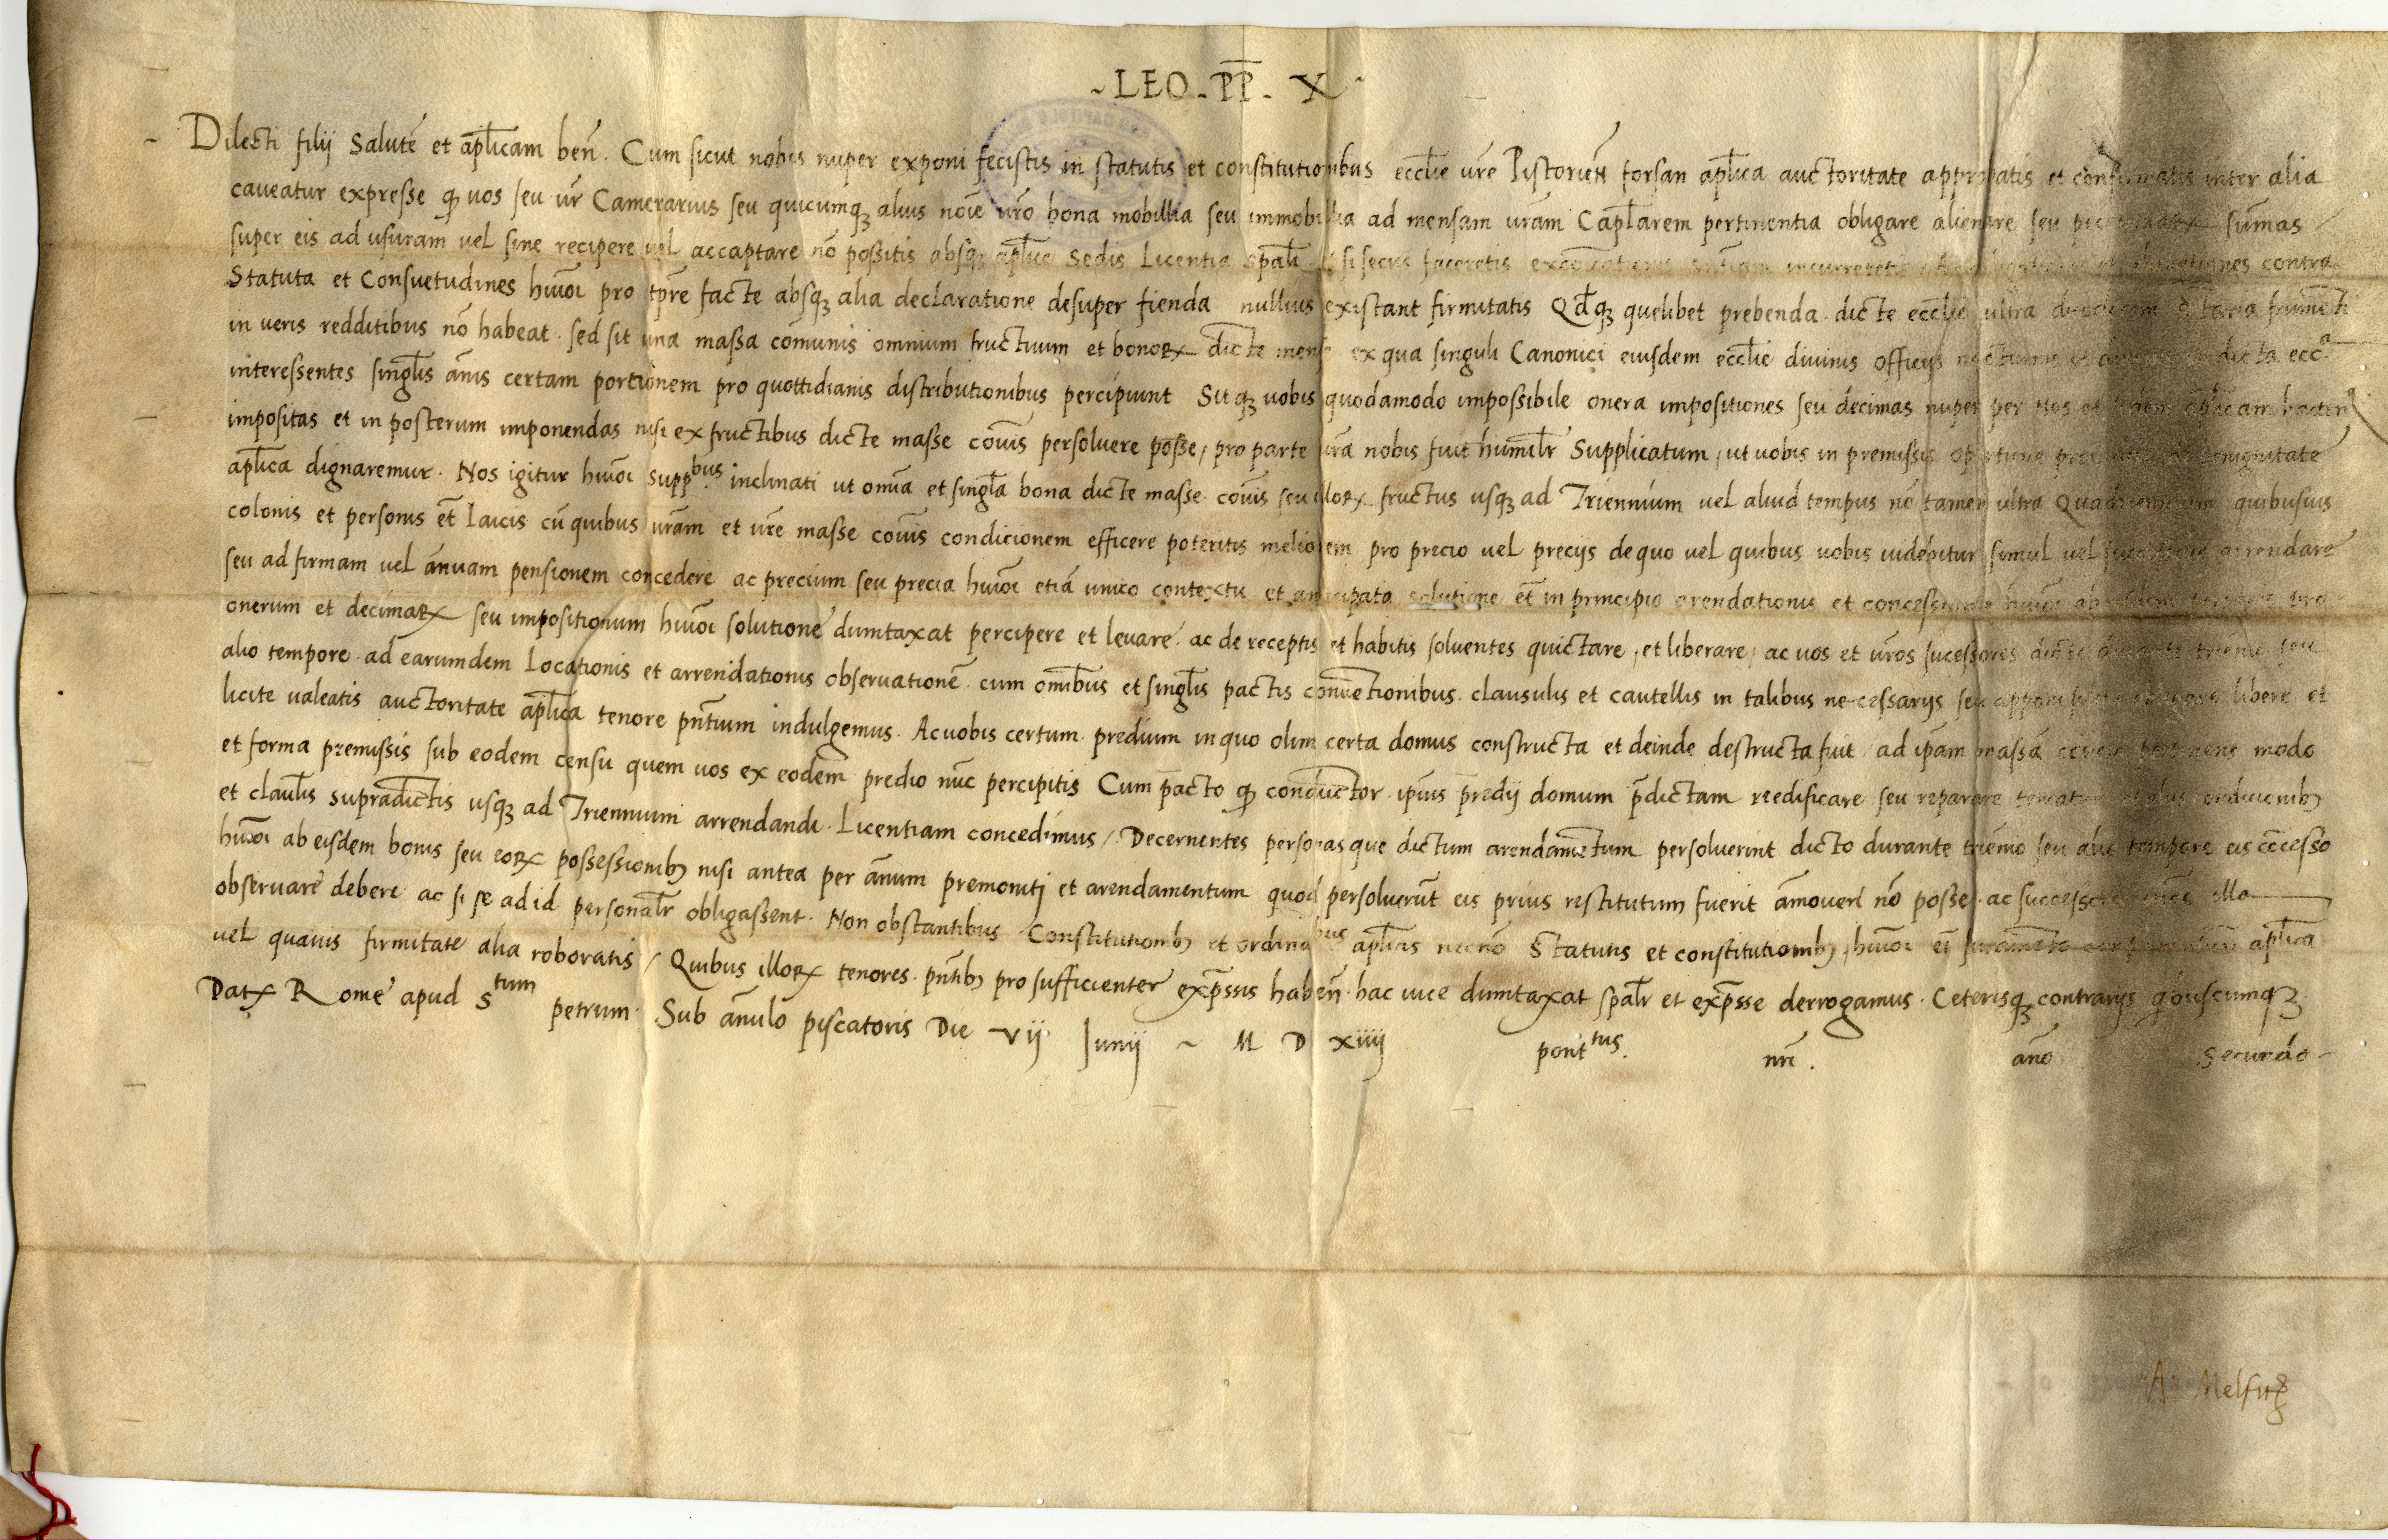 ~ LEO . PP̄ . X ~
~ Dilecti filij Salutē et ap̄licam ben̄. Cum sicut nobis nuper exponi fecistis in statutis et constitutionibus eccl̄ie vr̄e Pistorien̄ forsan ap̄lica auctoritate approbatis et confirmatis inter alia
caveatur expresse ꝙ vos seu vr̄ Camerarius seu quicumqꝫ alius noīe vr̄o bona mobillia seu immobillia ad mensam vr̄am Capl̄arem pertinentia obligare alienare seu sum̄as
super eis ad usuram vel sine recipere vel acceptare nō possitis absqꝫ ap̄lice Sedis Licentia spāli si secus faceretis incurreretis contra
Statuta et Consuetudines huiōi pro tp̄re facte absqꝫ alia declaratione desuper fienda nullius existant firmitatis Qd̄qꝫ quelibet prebenda dicte eccl̄ie ultra frumēti
in veris redditibus nō habeat . sed sit una massa cōmunis omnium fructuum et bonoꝝ dicte mense ex qua singuli Canonici eiusdem eccl̄ie divinis officijs dicta ecc.ᵃ
interessentes singl̄is ān̄is certam portionem pro quottidianis distributionibus percipiunt Sit qꝫ vobis quodamodo impossibile onera impositiones seu decimas nuper per Nos et ap̄licam
impositas et in posterum imponendas nisi ex fructibus dicte masse cōuis persolvere posse, pro parte vr̄a nobis fuit humil̄r Supplicatum, ut vobis in premissis benignitate
ap̄lica dignaremur . Nos igitur huiōi supp.ᵇᵘˢ inclinati ut om̄ia et singl̄a bona dicte masse cōuis seu illoꝝ fructus usqꝫ ad Triennium vel aliud tempus nō tamen ultra quibusvis
colonis et personis et̄ Laicis cū quibus vr̄am et vr̄e masse cōuis condicionem efficere poteritis meliorem pro precio vel precijs de quo vel quibus vobis videbitur simul vel arrendare
seu ad firmam vel ān̄uam pensionem concedere ac precium seu precia huiōi etiā unico contextu et anticipata solutione et̄ in principio arendationis et concessionis huiōi
onerum et decimaꝝ seu impositionum huiōi solutione dumtaxat percipere et levare . ac de receptis et habitis solventes quictare, et liberare, ac vos et vr̄os sucessores seu
alio tempore . ad earumdem Locationis et arrendationis observationē . cum om̄ibus et singl̄is pactis convētionibus . clausulis et cautellis in talibus necessarijs seu libere et
licite valeatis auctoritate ap̄lica tenore pn̄tium indulgemus . Ac vobis certum predium in quo olim certa domus constructa et deinde destructa fuit ad ip̄am massā modo
et forma premissis sub eodem censu quem vos ex eodem predio nūc percipitis Cum pacto ꝙ conductor ip̄ius predij domum p̄dictam reedificare seu reparare
et claul̄is supradictis usqꝫ ad Triennium arrendandi . Licentiam concedimus / Decernentes personas que dictum arendamētum persolverint dicto durante triēnio seu alio tempore eis cōcesso
huiōi ab eisdem bonis seu eoꝝ possessionibꝫ nisi antea per ān̄um premoniti et arendamentum quod persolverūt eis prius restitutum fuerit āmoveri nō posse . ac illa
observare debere ac si se ad id personal̄r obligassent . Non obstantibus Constitutionibꝫ et ordina.ᵇᵘˢ ap̄licis necnō Statutis et constitutionibꝫ huiōi ap̄lica
vel quavis firmitate alia roboratis / Quibus illoꝝ tenores pn̄tibꝫ pro sufficienter exp̄ssis haben̄ . hac vice dumtaxat spāl̄r et exp̄sse derrogamus . Ceterisqꝫ contrarijs quibuscumqꝫ
Datꝝ Rome apud Sᵗᵘᵐ petrum Sub ān̄ulo piscatoris Die vij Junij ~ M D xiiij pontᵗᵘˢ. nr̄i . an̄o Secundo ~
A. Melfit̄